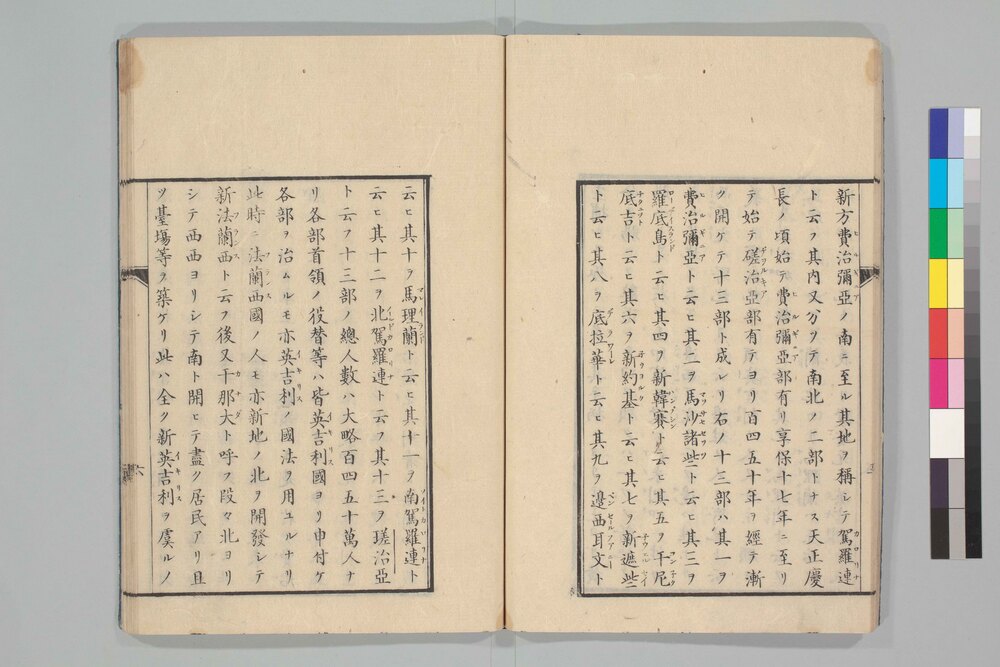 新方費治彌亞ノ南ニ至ル其地ヲ稱シテ駕羅連
ト云フ其内又分ヲテ南北ノ二部トナス天正慶
長ノ頃始テ費治彌亞部有リ享保十七年ニ至リ
テ始テ磋治亞部有テヨリ百四五十年ヲ經テ漸
ク開ケテ十三部ト成レリ右ノ十三部ハ其一ヲ
費治彌亞ト云ヒ其二ヲ馬沙諸些ト云ヒ其三ヲ
羅底島ト云ヒ其四ヲ新韓賽ト云ヒ其五ヲ干尼
底吉ト云ヒ其六ヲ新約基ト云ヒ其七ヲ新遮些
ト云ヒ其八ヲ底拉華ト云ヒ其九ヲ邉西耳文ト
云ヒ其十ヲ馬理蘭ト云ヒ其十一ヲ南駕羅連ト
云ヒ其十二ヲ北駕羅連ト云フ其十三ヲ瑳治亞
ト云フ十三部ノ總人數ハ大略百四五十萬人ナ
リ各部首領ノ役替等ハ皆英吉利國ヨリ申付ケ
各部ヲ治ムルモ亦英吉利ノ國法ヲ用ユルナリ
此時ニ法蘭西國ノ人モ亦新地ノ北ヲ開發シテ
新法蘭西ト云フ後又干那大ト呼ヲ段々北ヨリ
シテ西西ヨリシテ南ト開ヒテ盡ク居民アリ且
ツ臺塲等ヲ築ケリ此ハ全ク新英吉利ヲ虞ルノ
六